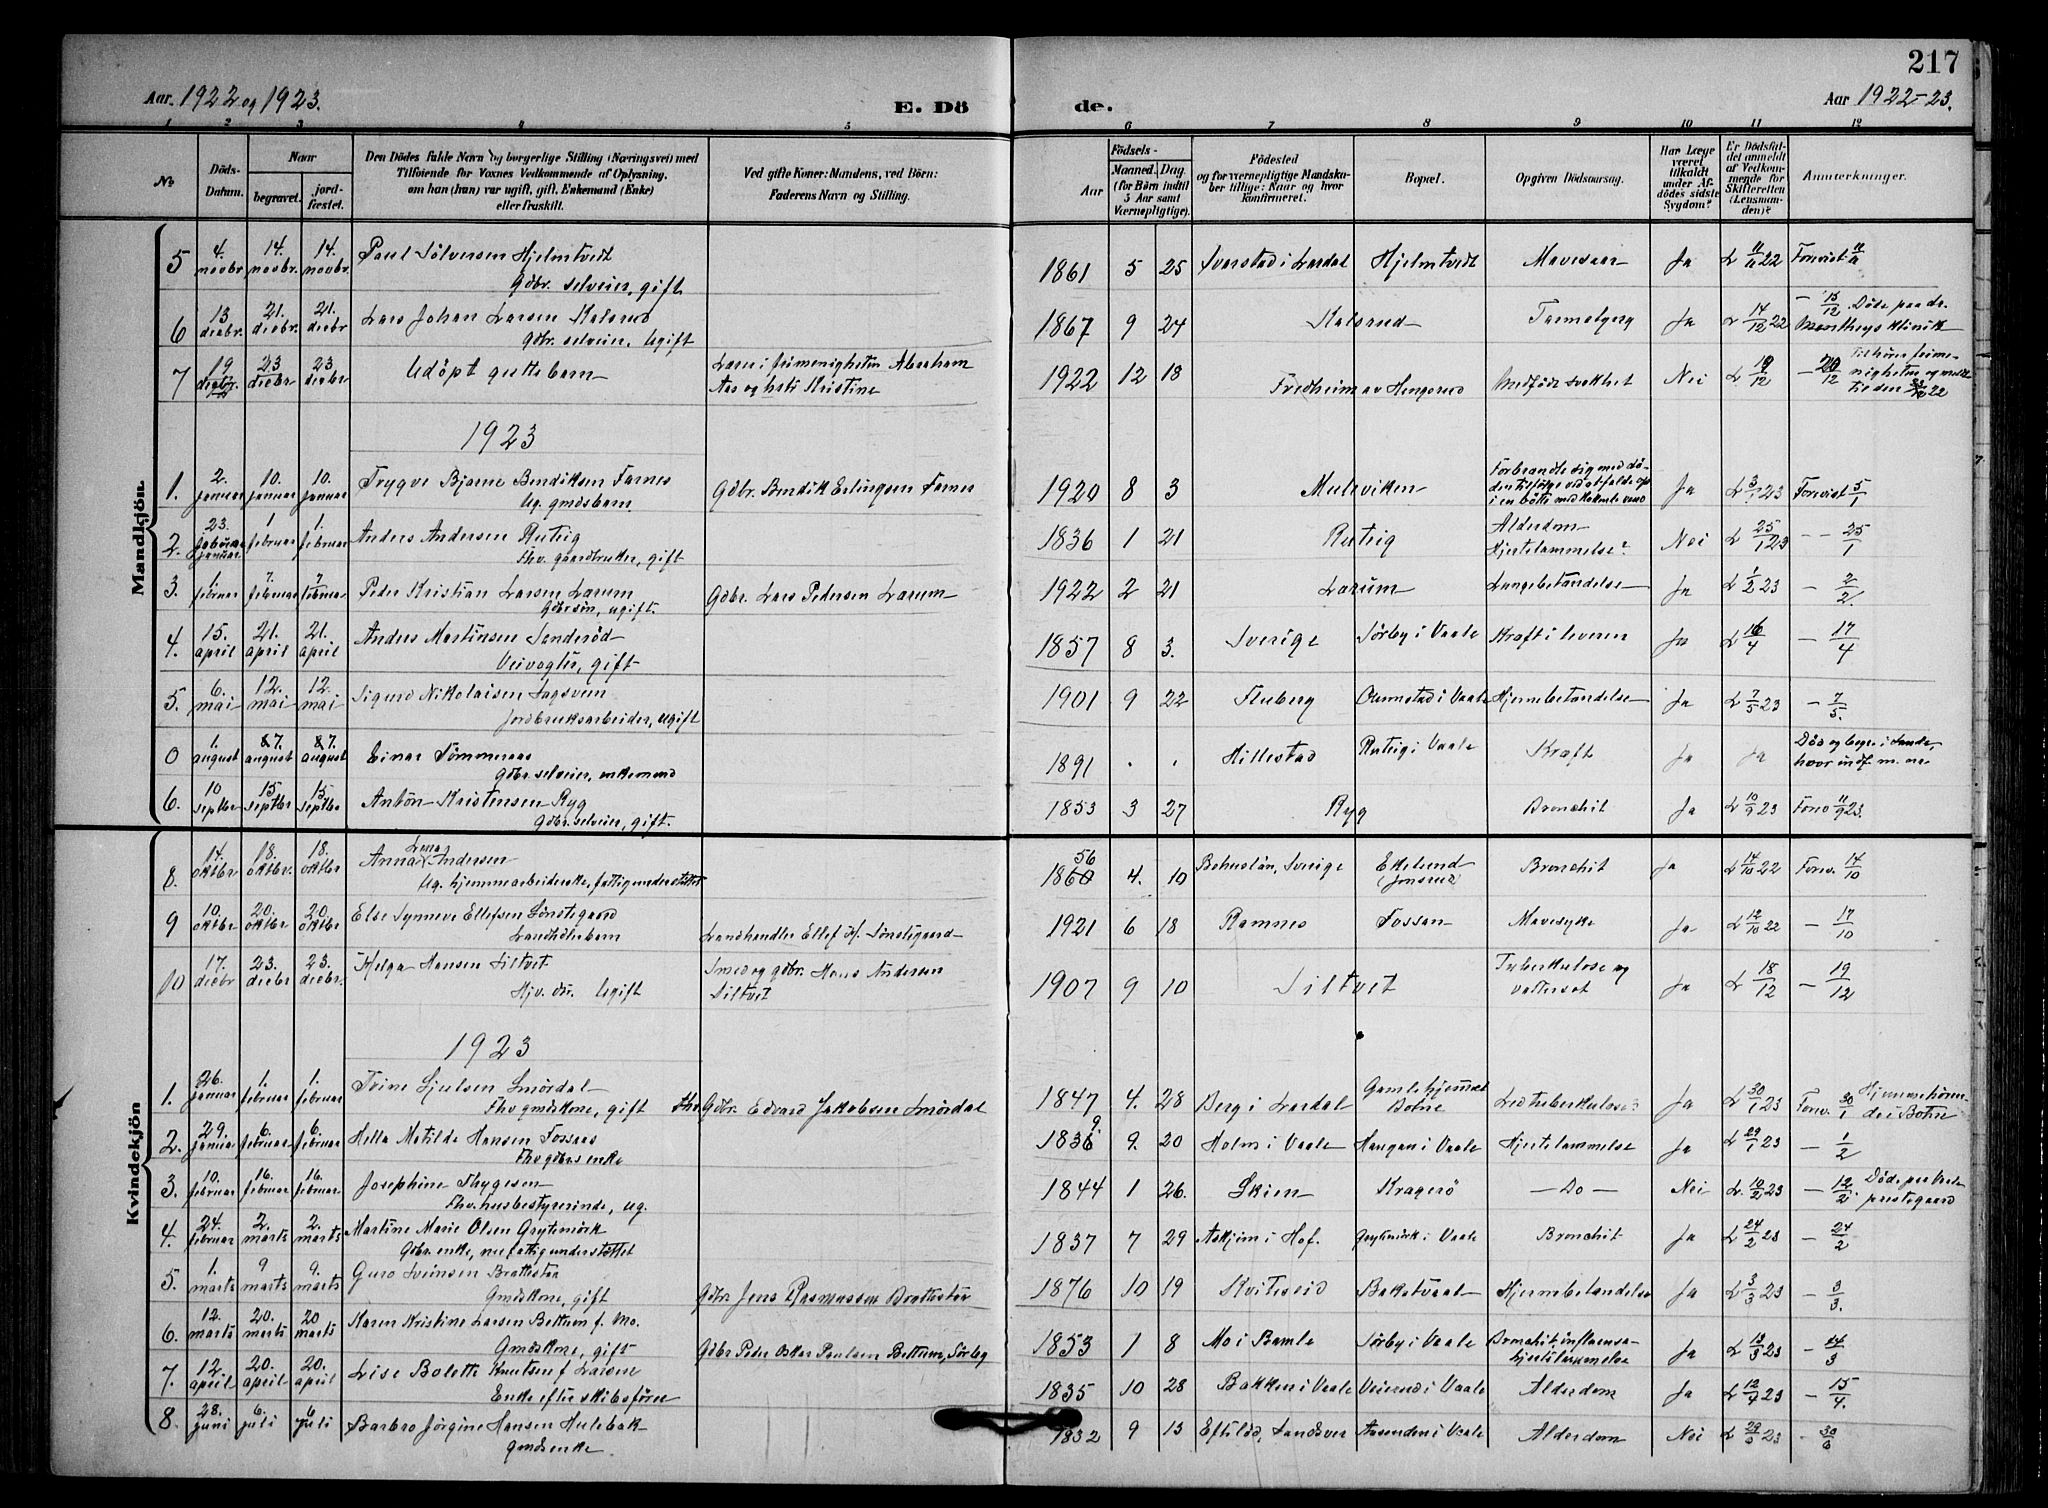 217
Aar. 1922 og 1923.
E. Dö
de.
Aar 1922-23.
1 2 3 4 5 6 7 8 9 10 11 12
No
Döds-Datum.
Naar
begravet.
jordfæstet.
Den Dödes fulde Navn og borgerlige Stilling (Næringsvei) med
Tilföiende for Voxnes Vedkommende af Oplysning,
om han (hun) var ugift, gift, Enkemand (Enke)
eller fraskilt.
Ved gifte Koner: Mandens, ved Börn:
Faderens Navn og Stilling.
Födsels-
Aar
Maaned. Dag.
(for Börn indtil
5 Aar samt
Værnepligtige).
Födested
og for vernepligtige Mandska-
ber tillige: Naar og hvor
konfirmeret.
Bopæl.
Opgiven Dödsaarsag.
Har Læge
været
tilkaldt
under Af-
dödes sidste
Sygdom?
Er Dödsfal-
det anmeldt
af Vedkom-
mende for
Skifteretten
(Lensman-
den)?
Anmerkninger.
Mandkjön.
5 4. novbr. 14. novbr. 14. novbr. Paul Sölversen Hjelmtvedt
Gdbr. selveier, gift
1861 5 25 Svarstad i Lardal Hjelmtvedt Mavesaar Ja L 11/11 22 Forevist 11/11
6 13 decbr. 21. decbr. 21. decbr Lars Johan Larsen Kalsrud
Gdbr. selveier, Ugift
1867 9 24 Kalsrud Ja 14/12 22 - 15/12. Döde paa dr.
klinik
7 19 23 decbr 23. decbr Udöpt guttebarn
Lærer i frimenigheten Abraham
Aas og hstr Kristine
1922 12 18 Fredheim av Medfödt svakhet Nei L 19/12 - 20/12 Tilhörer frime-
nigheten og
1923
1. 2. januar 10. januar 10. januar Trygve Bjarne Bendiksen Farnes
ug. gmdsbarn
Gdbr. Bendik Erlingsen Farnes
1920 8 3 Muleviken Forbrændte sig med dö-
den tilfölge ved at falde op
i en bötte med kokende vand Ja L 3/1 23 Forevist 5/1
2. 23. januar. 1 februar 1. februar Anders Andersen Rutvig
Fhv. gaardbruker, gift
1836 1 21 Rutvig Alderdom
Hjertelammelse? Nei L 25/1 23 - - 25/1
3. 1. februar 7. februar 7 februar Peder Kristian Larsen Larum
Gdbr sön, ugift.
Gdbr. Lars Pedersen Larum
1922 2 21 Larum Lungebetændelse Ja L 1/2 23 - 2/2.
4. 15. april 21. april 21. april Anders Martinsen Sanderöd
Veivogter, gift
1857 8 3. Sverige Sörby i Vaale Kræft i leveren Ja L 16/4 - 17/4
5. 6. mai 12. mai 12. mai Sigurd Nikolaisen Sagsveen
Jordbruksarbeider, ugift
1901 9 22 Fluberg i Vaale Hjernebetændelse Ja L 7/5 23 - 7/5.
0 1. august 7. august 7. august Einar Sömmeraas
Gdbr. selveier, enkemand
1891 . . Hillestad Rutvig i Vaale Kræft Ja Ja Död og begr. i Sande,
hvor indf. m. no
6. 10 septbr 15. septbr 15. septbr Anton Kristensen Ryg
Gdbr. selveier, gift.
1853 3 27 Ryg Bronchit Ja L 10/9 23 Forev 11/9 23.
Kvindekjön
8. 14. oktbr 18. oktbr. 18. oktbr Anna Lena Andersen
ug. hjemmearbeiderske, fattigunderstöttet
1860 56 4. 10 Bohuslän, Sverige Ekelund
(Jonsrud) Bronchit Ja L 14/10 22 Forev. 14/10
9 10. oktbr 20. oktbr 20. oktbr Else Synneve Ellefsen Sönstegaard
Landhdlerbarn
Landhandler Ellef H. Sönstegaard
1921 6 18 Ramnes Fossan Mavesyke Ja L 12/10 22 - 17/10
10 17. decbr 23. decbr 23. decbr. Helga Hansen Siltvet
Hjv. dtr. Ugift
Smed og gdbr. Hans Andersen
Siltvet
1907 9 10 Siltvet Tuberkulose og
vattersot Ja L 18/12 - 19/12
1923
1. 26. januar 1. februar 1. februar Trine Sjulsen Smördal
Fhv gmdskone, gift
fhv Gdbr. Edvard Jakobsen Smördal
1847 4. 28 Berg i Lardal Gamlehjemmet
Botne Ledtuberkulose Ja L 30/1 23 Forev. 30/1 Hjemmehören-
de i Botne
2. 29. januar 6. februar 6. februar Hella Matilde Hansen Fossaas
Fhv gdbrs enke
1836 9. 9. 20 Holm i Vaale Haugan i Vaale Hjertelammelse Ja L 29/1 23 - 1/2
3. 10. februar 16. februar 16. februar Josephine Thygesen
Fhv. husbestyrerinde, ug.
1844 1 26. Skien Kragerö - Do - Nei L. 10/2 23 - 12/2. Döde paa Vaale
prestegaard
4. 24. februar 2. marts 2. marts Martine Marie Olsen Grytemörk
Gdbr. enke, nu fattigunderstöttet
1837 7 29 i Hof. Grytemörk i Vaale Bronchit Ja L 24/2 23 - 24/2
5. 1. marts 9 marts 9. marts Guro Svensen Brattestaa
Gmdskone, gift
Gdbr. Jens Rasmussen Brattestaa
1876 10 19 Kviteseid Hjernebetændelse Ja L 3/3 23 - 3/3.
6. 12. marts 20. marts 20 marts Karen Kristine Larsen Bettum f. Mo.
Gmdskone, gift
Gdbr Peder Oskar Paulsen Bettum, Sörby
1853 1 8 Mo i Bamle Sörby i Vaale Bronchit, influensa-
hjertelammelse Ja L 13/3 23 - 14/3
7. 12 april 20. april 20. april Lise Bolette Knutsen f Larsen
Enke efter skibsförer
1835 10 28 Bakken i Vaale i Vaale Alderdom Ja L 12/4 23 - 15/4.
8. 28. juni 6. juli 6 juli Barbro Jörgine Hansen Hulebak
Gmdsenke.
1832 9 13 Efteløt, Sandsver i Vaale Alderdom Nei L 29/6 23 - 30/6